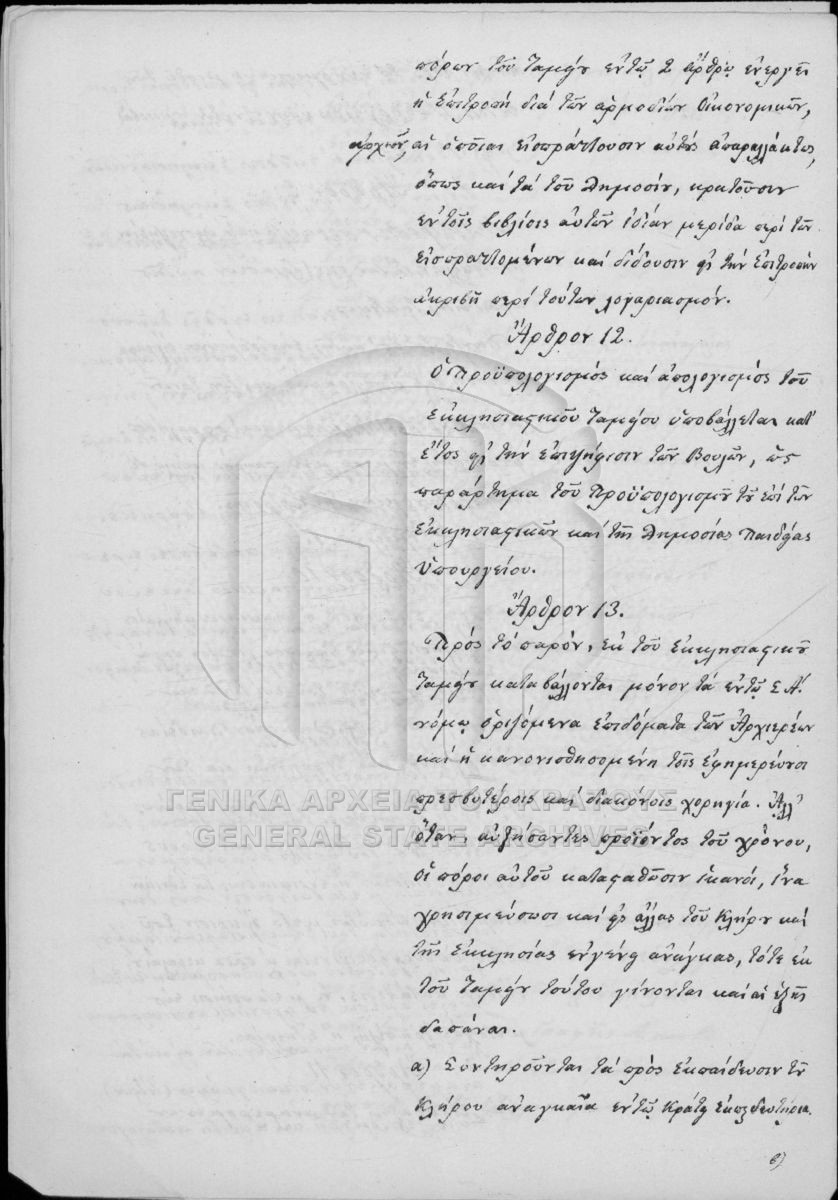 πόρων τοῦ Ταμείου ἐν τῷ 2 ἄρθρῳ ἐνεργεῖ
ἡ Ἐπιτροπή διά τῶν ἁρμοδίων Οἰκονομικῶν,
ἀρχῶν, αἱ ὁποῖαι εἰσπράττουσιν αὐτούς ἀπαραλλάκτως,
ὅπως καί τά τοῦ Δημοσίου, κρατοῦσιν
ἐν τοῖς βιβλίοις αὐτῶν ἰδίαν μερίδα περί τῶν
εἰσπραττομένων καί δίδουσιν εἰς τήν Ἐπιτροπήν
ἀκριβῆ περί τούτων λογαριασμόν.
Ἄρθρον 12.
Ὁ Προϋπολογισμός καί ἀπολογισμός τοῦ
Ἐκκλησιαστικοῦ Ταμείου ὑποβάλλεται κατ'
ἔτος εἰς τήν ἐπιψήφισιν τῶν Βουλῶν, ὡς
παράρτημα τοῦ Προϋπολογισμοῦ τοῦ ἐπί τῶν
Ἐκκλησιαστικῶν καί τῆς Δημοσίας Παιδείας
Ὑπουργείου.
Ἄρθρον 13.
Πρός τό παρόν, ἐκ τοῦ Ἐκκλησιαστικοῦ
Ταμείου καταβάλλονται μόνον τά ἐν τῷ Σ Α΄.
νόμῳ ὁριζόμενα ἐπιδόματα τῶν Ἀρχιερέων
καί ἡ κανονισθησομένη τοῖς ἐφημερεύουσι
πρεσβυτέροις καί διακόνοις χορηγία. Ἀλλ'
ὅταν, αὐξήσαντες προϊόντος τοῦ χρόνου,
οἱ πόροι αὐτοῦ κατασταθῶσιν ἱκανοί, ἵνα
χρησιμεύσωσι καί εἰς ἄλλας τοῦ Κλήρου καί
τῆς Ἐκκλησίας εὐγενεῖς ἀνάγκας, τότε ἐκ
τοῦ Ταμείου τούτου γίνονται καί αἱ ἑξῆς
δαπάναι.
α) Συντηροῦνται τά πρός ἐκπαίδευσιν τοῦ
Κλήρου ἀναγκαῖα ἐν τῷ Κράτει ἐκπαιδευτήρια.
β)
ΓΕΝΙΚΑ ΑΡΧΕΙΑ ΤΟΥ ΚΡΑΤΟΥΣ
GENERAL STATE ARCHIVES